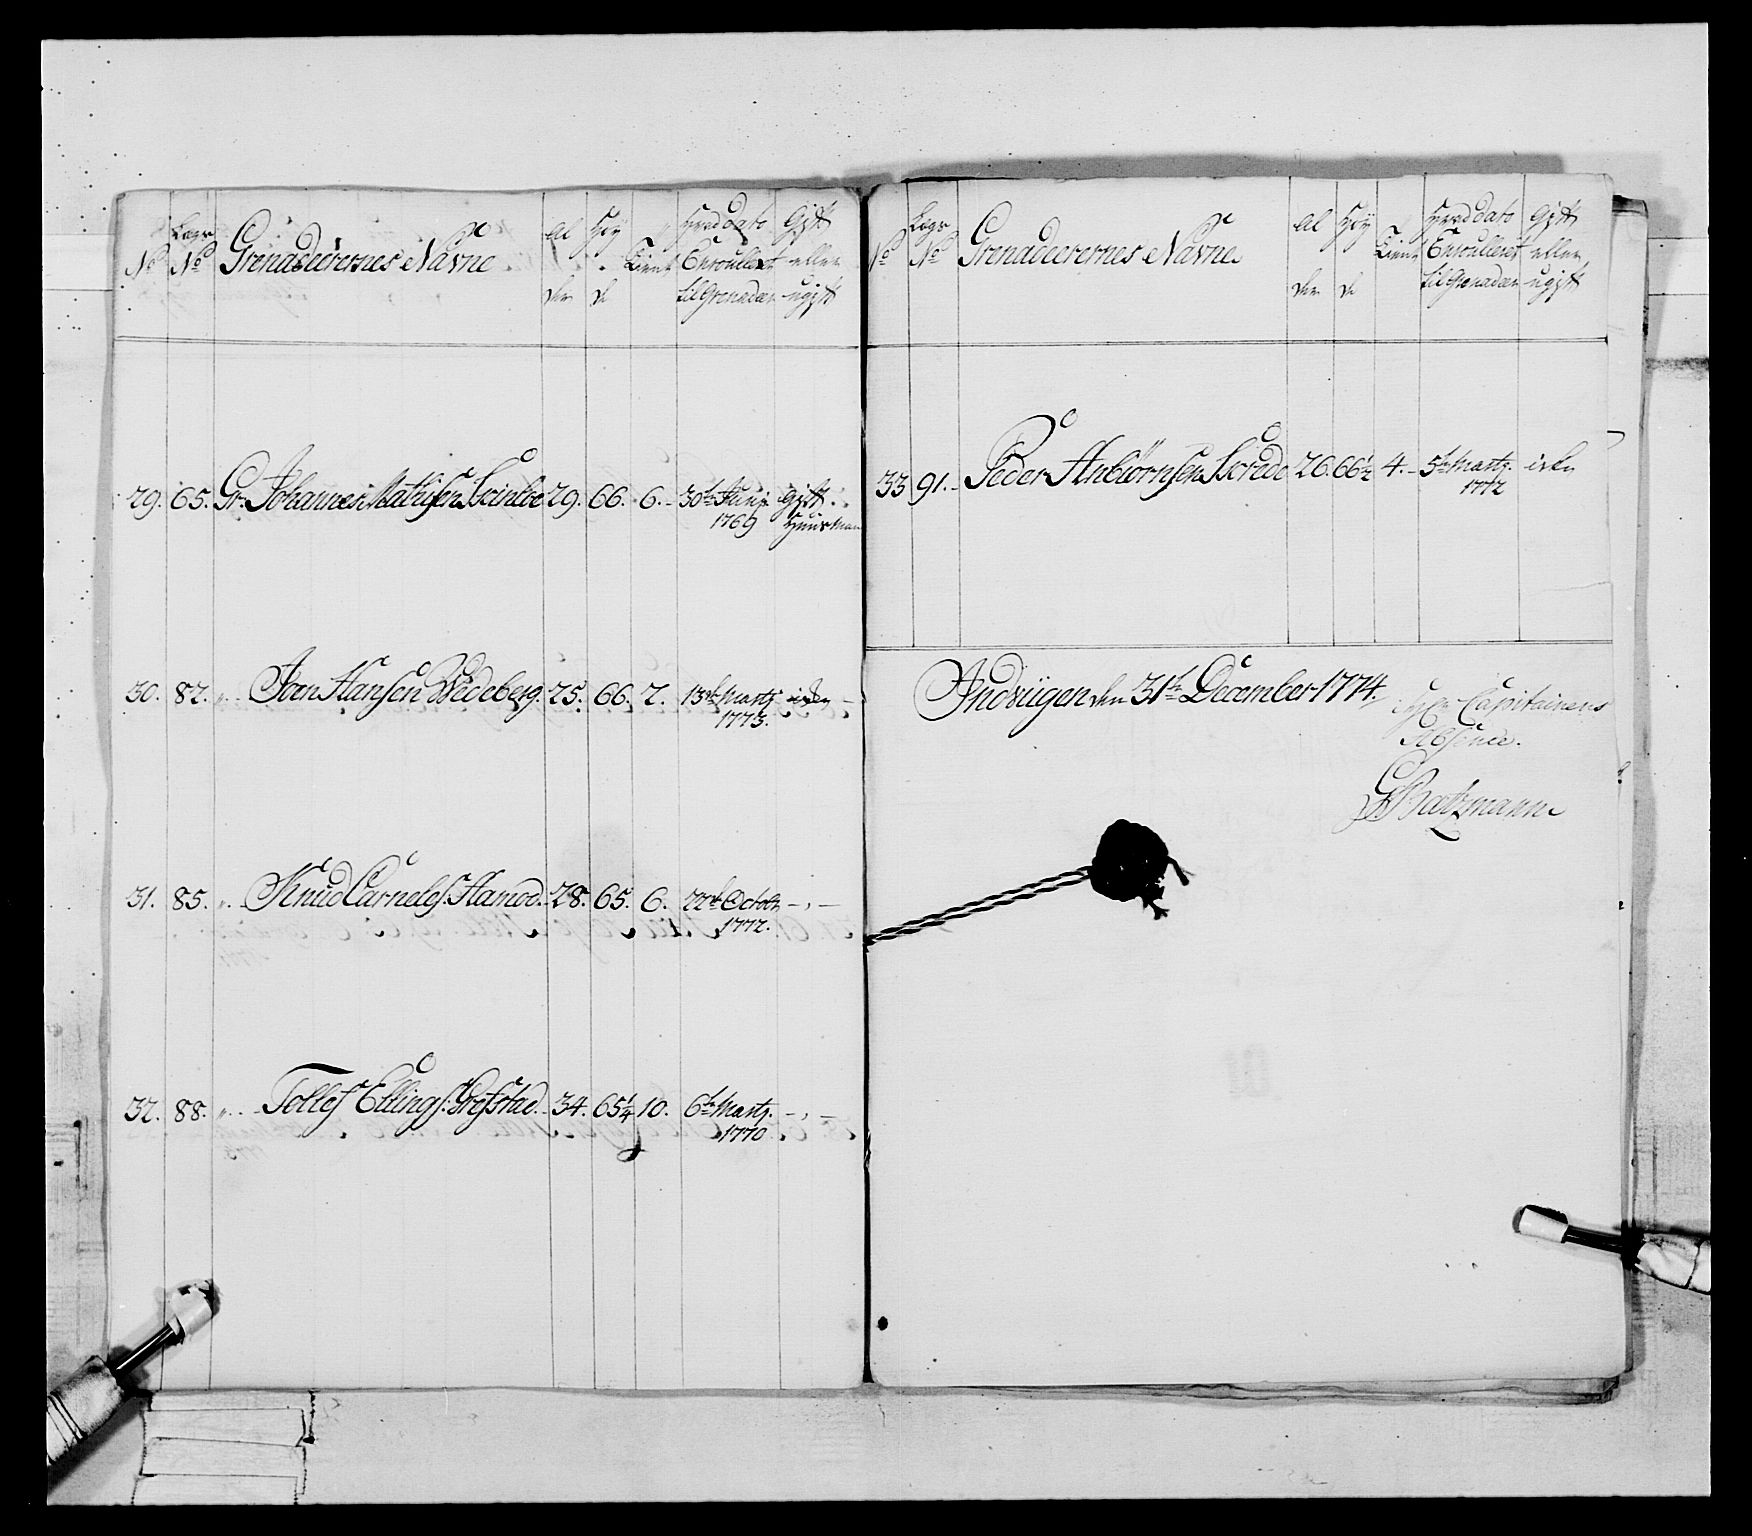 No Lægs No Grenadeerernes Navne Al der Høy de Tient Hvad dato Enroulleret til Grenadeer Gift eller ugift
29. 65. Gr. Johannes Mathisen 29. 66. 6. 30te Junj 1769 Gift Huusmand
30. 82. " Joen Hansen Wedeberg. 25. 66. 2. 13de Martj 1773. icke
31. 85. " Knud Carneles. Hamod. 28. 65. 6. 22de Octobr 1772. - , -
32. 88. " Tollef Ellings: Grefstad. 34. 65¼ 10. 6te Martj. 1770 - , -
No Lægs No Grenadeerernes Navne Al der Høy de Tient Hvad dato Enroulleret til Grenadeer Gift eller ugift
33 91. Peder Anbiørnsen 26. 66½ 4. 5te Martj. 1772 icke
Indviigen den 31te December 1774.
Hr Capitainens
Absence.
Batzmann